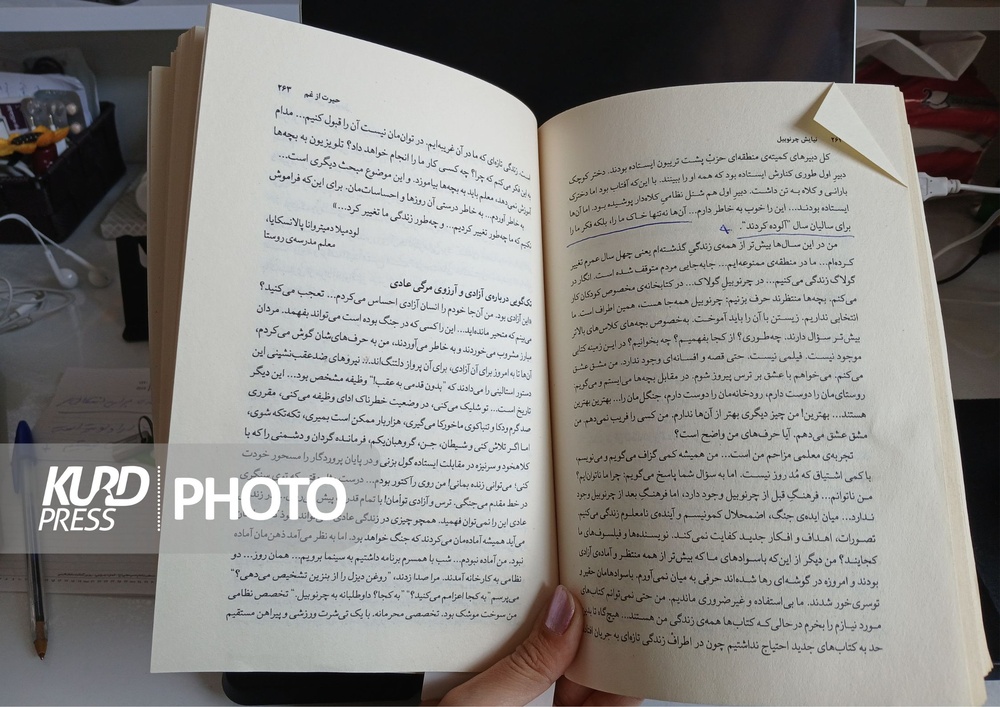 نیایش چرنوبیل
کل دبیرهای کمیته‌ی منطقه‌ای حزب پشت تریبون ایستاده بودند. دختر کوچک
دبیر اول طوری کنارش ایستاده بود که همه او را ببینند. با این‌که آفتاب بود اما دخترک
بارانی و کلاه به تن داشت. دبیر اول هم شنل نظامی کلاه‌دار پوشیده بود. اما آن‌ها
ایستاده بودند... این را خوب به خاطر دارم... آن‌ها نه‌تنها خاک ما را، بلکه فکر ما را
برای سالیان سال "آلوده کردند".
من در این سال‌ها بیش‌تر از همه‌ی زندگی گذشته‌ام یعنی چهل سال عمرم تغییر
کرده‌ام... ما در منطقه‌ی ممنوعه‌ایم... جابه‌جایی مردم متوقف شده است. انگار در
گولاگ زندگی می‌کنیم... در چرنوبیل گولاگ... در کتابخانه‌ی مخصوص کودکان کار
می‌کنم. بچه‌ها منتظرند حرف بزنیم: چرنوبیل همه‌جا هست، همین اطراف است. ما
انتخابی نداریم. زیستن با آن را باید آموخت. به‌خصوص بچه‌های کلاس‌های بالاتر
بیش‌تر سؤال دارند. چه‌طوری؟ از کجا بفهمیم؟ چه بخوانیم؟ در این زمینه کتابی
موجود نیست. فیلمی نیست. حتی قصه و افسانه‌ای وجود ندارد. من مشق عشق
می‌کنم. می‌خواهم با عشق بر ترس پیروز شوم. در مقابل بچه‌ها می‌ایستم و می‌گویم
روستای‌مان را دوست دارم، رودخانه‌مان را دوست دارم، جنگل‌مان را... بهترین بهترین
هستند... بهترین! من چیز دیگری بهتر از آن‌ها ندارم. من کسی را فریب نمی‌دهم. من
مشق عشق می‌دهم. آیا حرف‌های من واضح است؟
تجربه‌ی معلمی مزاحم من است... من همیشه کمی گزاف می‌گویم و می‌نویسم،
با کمی اشتیاق که مُد روز نیست. اما به سؤال شما پاسخ می‌گویم: چرا ما ناتوان‌ایم؟
من ناتوانم... فرهنگِ قبل از چرنوبیل وجود دارد، اما فرهنگِ بعد از چرنوبیل وجود
ندارد... میان ایده‌ی جنگ، اضمحلال کمونیسم و آینده‌ی نامعلوم زندگی می‌کنیم
تصورات، اهداف و افکار جدید کفایت نمی‌کند. نویسنده‌ها و فیلسوف‌های ما
کجایند؟ من دیگر از این‌که باسوادهای ما که بیش‌تر از همه منتظر و آماده‌ی آزادی
بودند و امروزه در گوشه‌ای رها شده‌اند حرفی به میان نمی‌آورم. باسوادهامان حقیر و
توسری‌خور شدند. ما بی‌استفاده و غیرضروری ماندیم. من حتی نمی‌توانم کتاب‌های
مورد نیازم را بخرم درحالی‌که کتاب‌ها همه‌ی زندگی من هستند...
حد به کتاب‌های جدید احتیاج نداشتیم چون در اطراف زندگی تازه‌ای به جریان
حیرت از غم
۲۶۳
زندگی تازه‌ای که ما در آن غریبه‌ایم. در توان‌مان نیست آن را قبول کنیم... مدام
به این فکر می‌کنم که چرا؟ چه کسی کار ما را انجام خواهد داد؟ تلویزیون به بچه‌ها
آموزش نمی‌دهد، معلم باید به بچه‌ها بیاموزد. و این موضوع مبحث دیگری است...
به خاطر آوردم... به خاطر درستی آن روزها و احساسات‌مان. برای این‌که فراموش
نکنیم که ما چه‌طور تغییر کردیم... و چه‌طور زندگی ما تغییر کرد...»
لودمیلا دمیتروانا پالانسکایا،
معلم مدرسه‌ی روستا
تک‌گویی درباره‌ی آزادی و آرزوی مرگی عادی
«این آزادی بود. من آن‌جا خودم را انسان آزادی احساس می‌کردم... تعجب می‌کنید؟
می‌بینم که متحیر مانده‌اید... این را کسی که در جنگ بوده است می‌تواند بفهمد. مردان
مبارز مشروب می‌خوردند و به خاطر می‌آوردند، من به حرف‌های‌شان گوش می‌کردم،
آن‌ها تا به امروز برای آن آزادی، برای آن پرواز دلتنگ‌اند... نیروهای ضدعقب‌نشینی این
دستور استالینی را می‌دادند که "بدون قدمی به عقب!" وظیفه مشخص بود... این دیگر
تاریخ است... تو شلیک می‌کنی، در وضعیت خطرناک ادای وظیفه می‌کنی، مقرری
صد گرم ودکا و تنباکوی ماخورکا می‌گیری، هزاربار ممکن است بمیری، تکه‌تکه شوی،
اما اگر تلاش کنی و شیطان، جن، گروهبان‌یکم، فرمانده گردان و دشمنی را که با
کلاهخود و سرنیزه در مقابلت ایستاده گول بزنی و در پایان پروردگار را مسحور خودت
کنی؛ می‌توانی زنده بمانی! من روی رآکتور بودم...
در خط مقدم می‌جنگی. ترس و آزادی توأمان! با تمام
عادی این را نمی‌توان فهمید. همچو چیزی در زندگی عادی
می‌آید همیشه آماده‌مان می‌کردند که جنگ خواهد بود. اما به نظر می‌آمد ذهن‌مان آماده
نبود. من آماده نبودم... شب با همسرم برنامه داشتیم به سینما برویم... همان روز... دو
نظامی به کارخانه آمدند. مرا صدا زدند، "روغن دیزل را از بنزین تشخیص می‌دهی؟"
می‌پرسم "به کجا اعزامم می‌کنید؟" "به کجا؟ داوطلبانه به چرنوبیل." تخصص نظامی
من سوخت موشک بود. تخصصی محرمانه. با یک تی‌شرت ورزشی و پیراهن مستقیم
KURD
PRESS
PHOTO